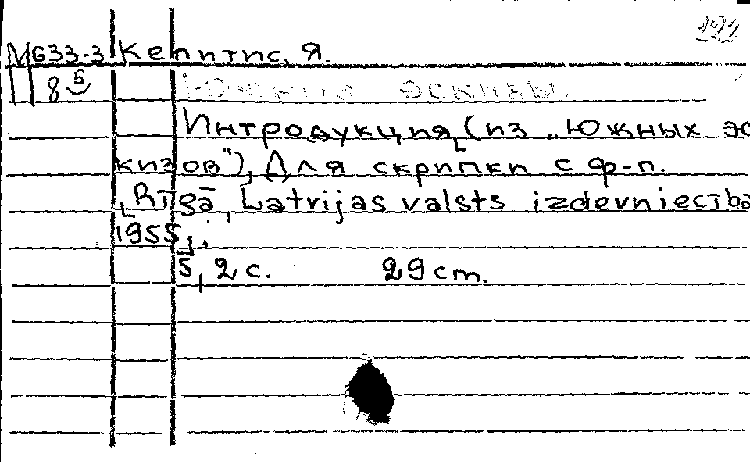 М G33-3 Кепитис, Я.
8 5
Южные эскизы.
Интродукция, (из „Южных эс
кизов"), Для скрипки с ф-п.
Rīgā, Latvijas valsts izdevniecība
1955,
5, 2 с. 29 cm.